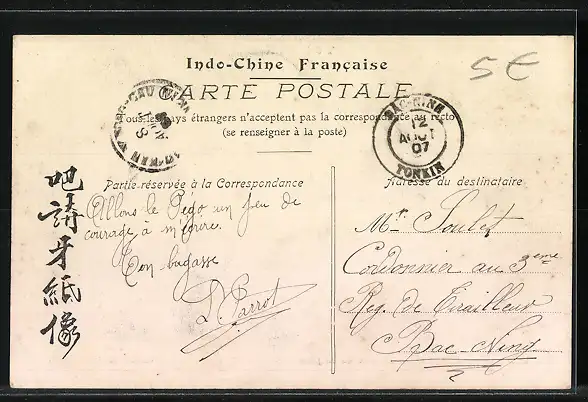 Indo-Chine Française
5 €
CARTE POSTALE
Tous les pays étrangers n'acceptent pas la correspondance au recto
(se renseigner à la poste)
BAC-NINH
12
AOUT
07
TONKIN
Partie réservée à la Correspondance
Adresse du destinataire
Allons le Pégo un feu de
courage à m'écrire.
Ton bugasse
D. Parrot
Mr. Poulet
Cordonnier au 3eme
Reg. de Tirailleur
Bac-Ninh
吧請牙紙像